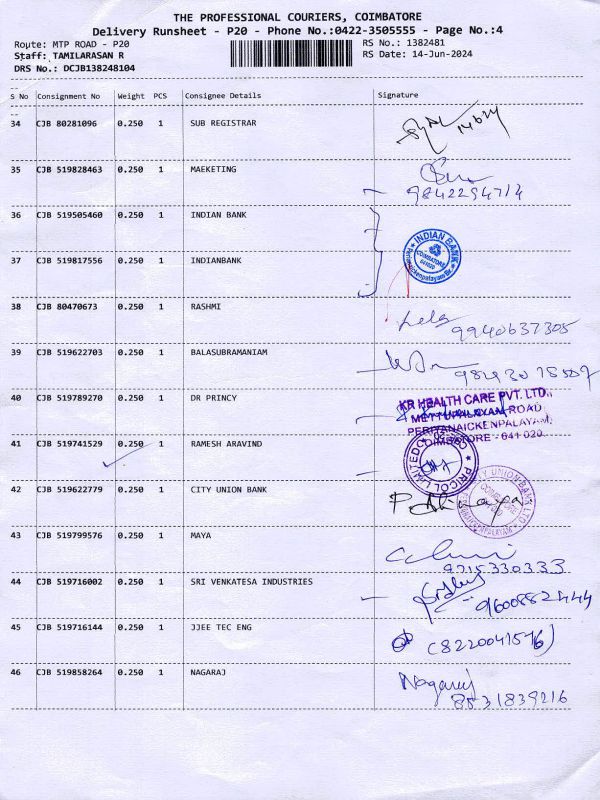 THE PROFESSIONAL COURIERS, COIMBATORE
Delivery Runsheet - P20 - Phone No.:0422-3505555 - Page No.:4
Route: MTP ROAD - P20 RS No.: 1382481
Staff: TAMILARASAN R RS Date: 14-Jun-2024
DRS No.: DCJB138248104
S No Consignment No Weight PCS Consignee Details Signature
34 CJB 80281096 0.250 1 SUB REGISTRAR
35 CJB 519828463 0.250 1 MAEKETING
9842294714
36 CJB 519505460 0.250 1 INDIAN BANK
INDIAN BANK
COIMBATORE
641020
Periyanaickenpalayam Br.
37 CJB 519817556 0.250 1 INDIANBANK
38 CJB 80470673 0.250 1 RASHMI
9940637305
39 CJB 519622703 0.250 1 BALASUBRAMANIAM
40 CJB 519789270 0.250 1 DR PRINCY
KR HEALTH CARE PVT. LTD.,
METTUPALAYAM ROAD
PERIYANAICKENPALAYAM,
COIMBATORE - 641 020
41 CJB 519741529 0.250 1 RAMESH ARAVIND
PRICOL LIMITED
42 CJB 519622779 0.250 1 CITY UNION BANK
CITY UNION BANK LTD
43 CJB 519799576 0.250 1 MAYA
9715330333
44 CJB 519716002 0.250 1 SRI VENKATESA INDUSTRIES
9600882444
45 CJB 519716144 0.250 1 JJEE TEC ENG
46 CJB 519858264 0.250 1 NAGARAJ
Nagaraj
8531839216